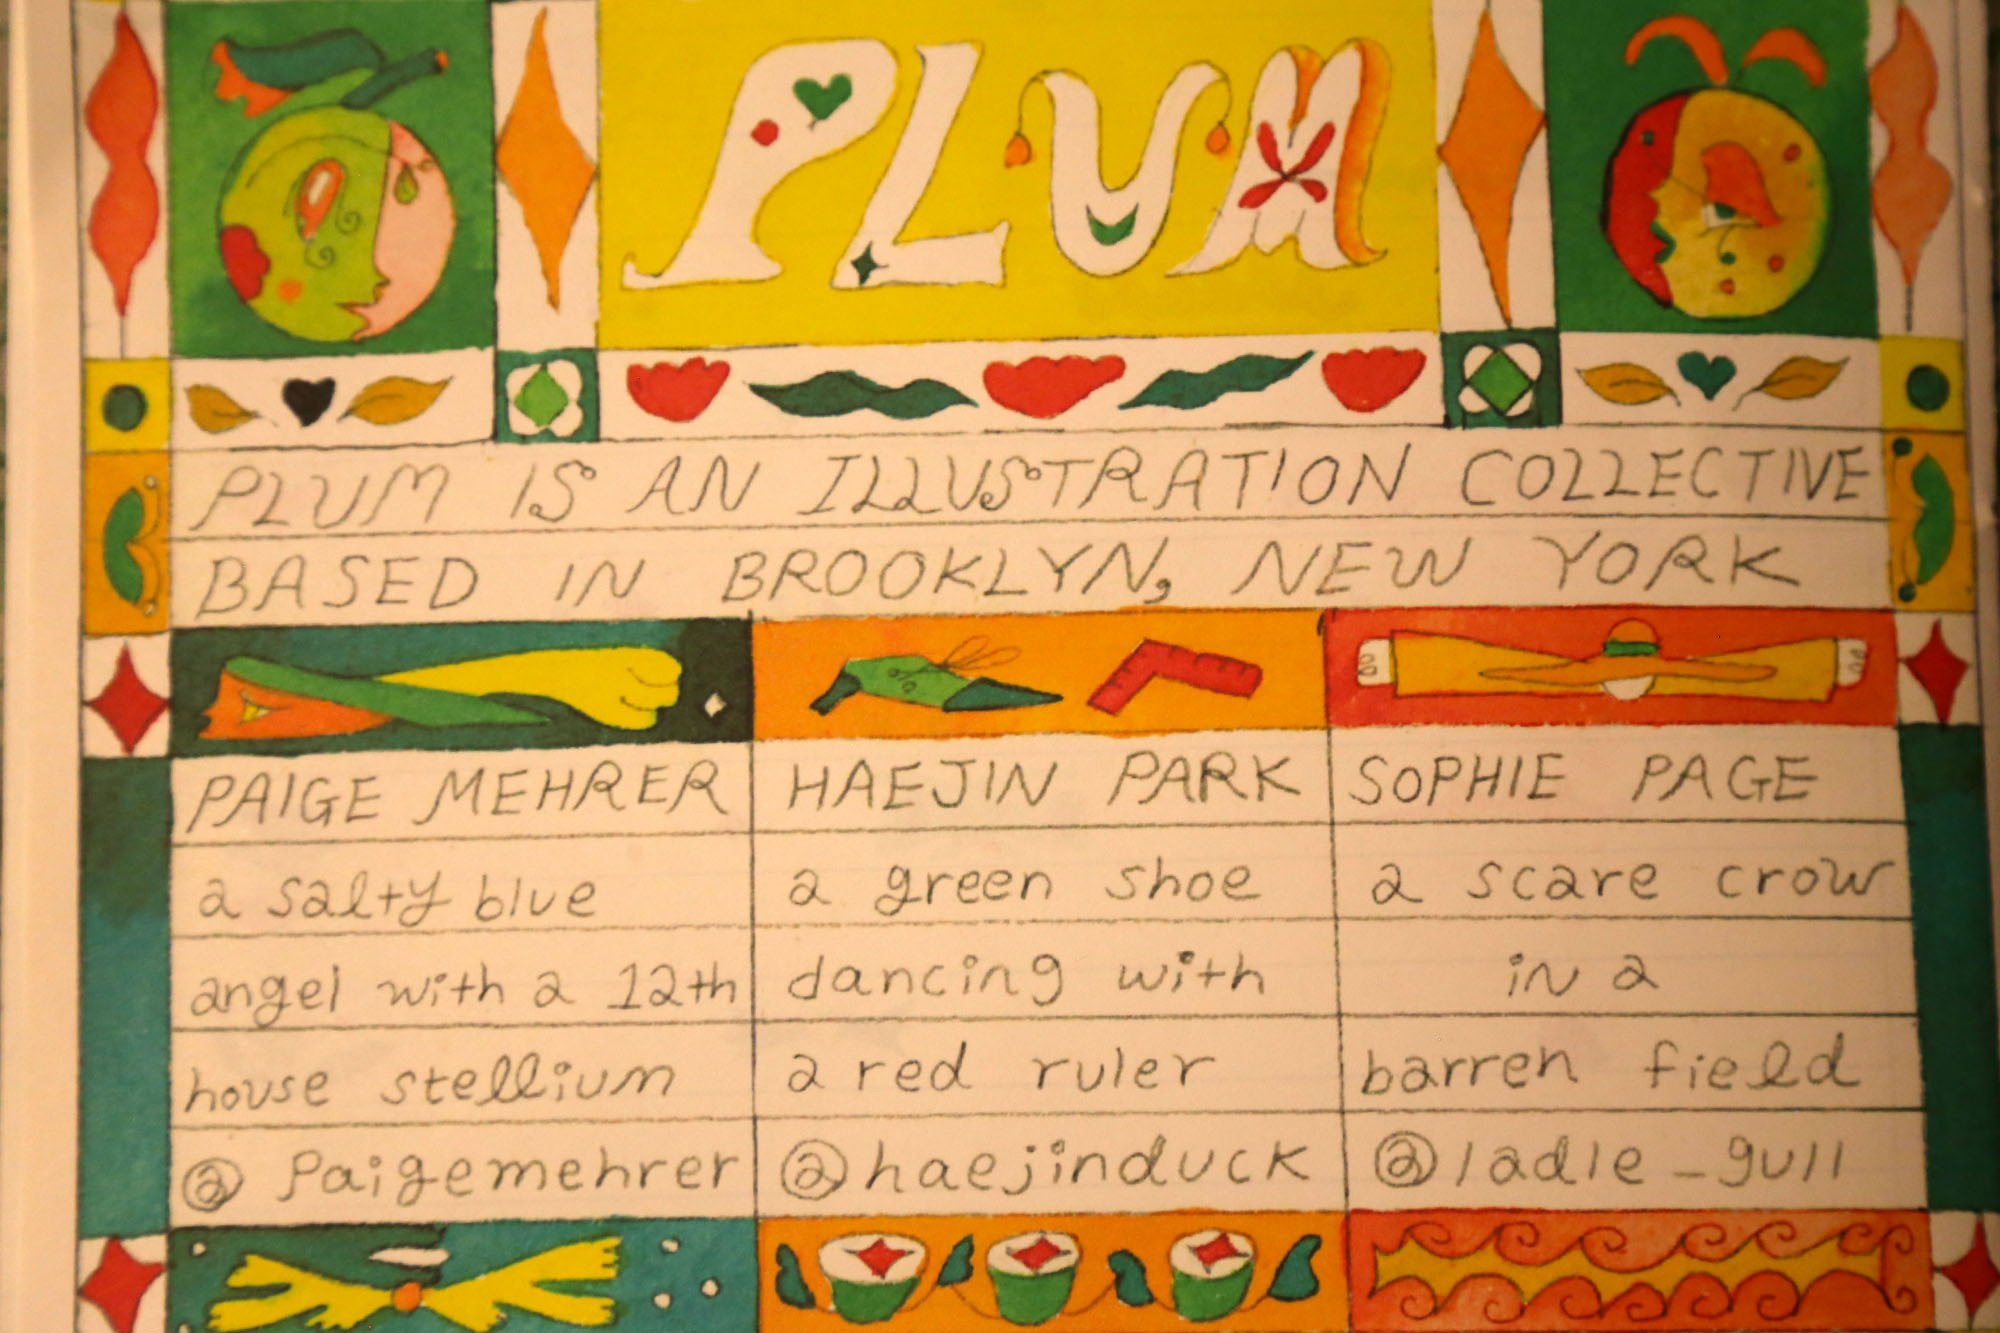 PLUM
PLUM IS AN ILLUSTRATION COLLECTIVE
BASED IN BROOKLYN, NEW YORK
PAIGE MEHRER
a salty blue
angel with a 12th
house stellium
@ paigemehrer
HAEJIN PARK
a green shoe
dancing with
a red ruler
@haejinduck
SOPHIE PAGE
a scare crow
in a
barren field
@ladle_gull